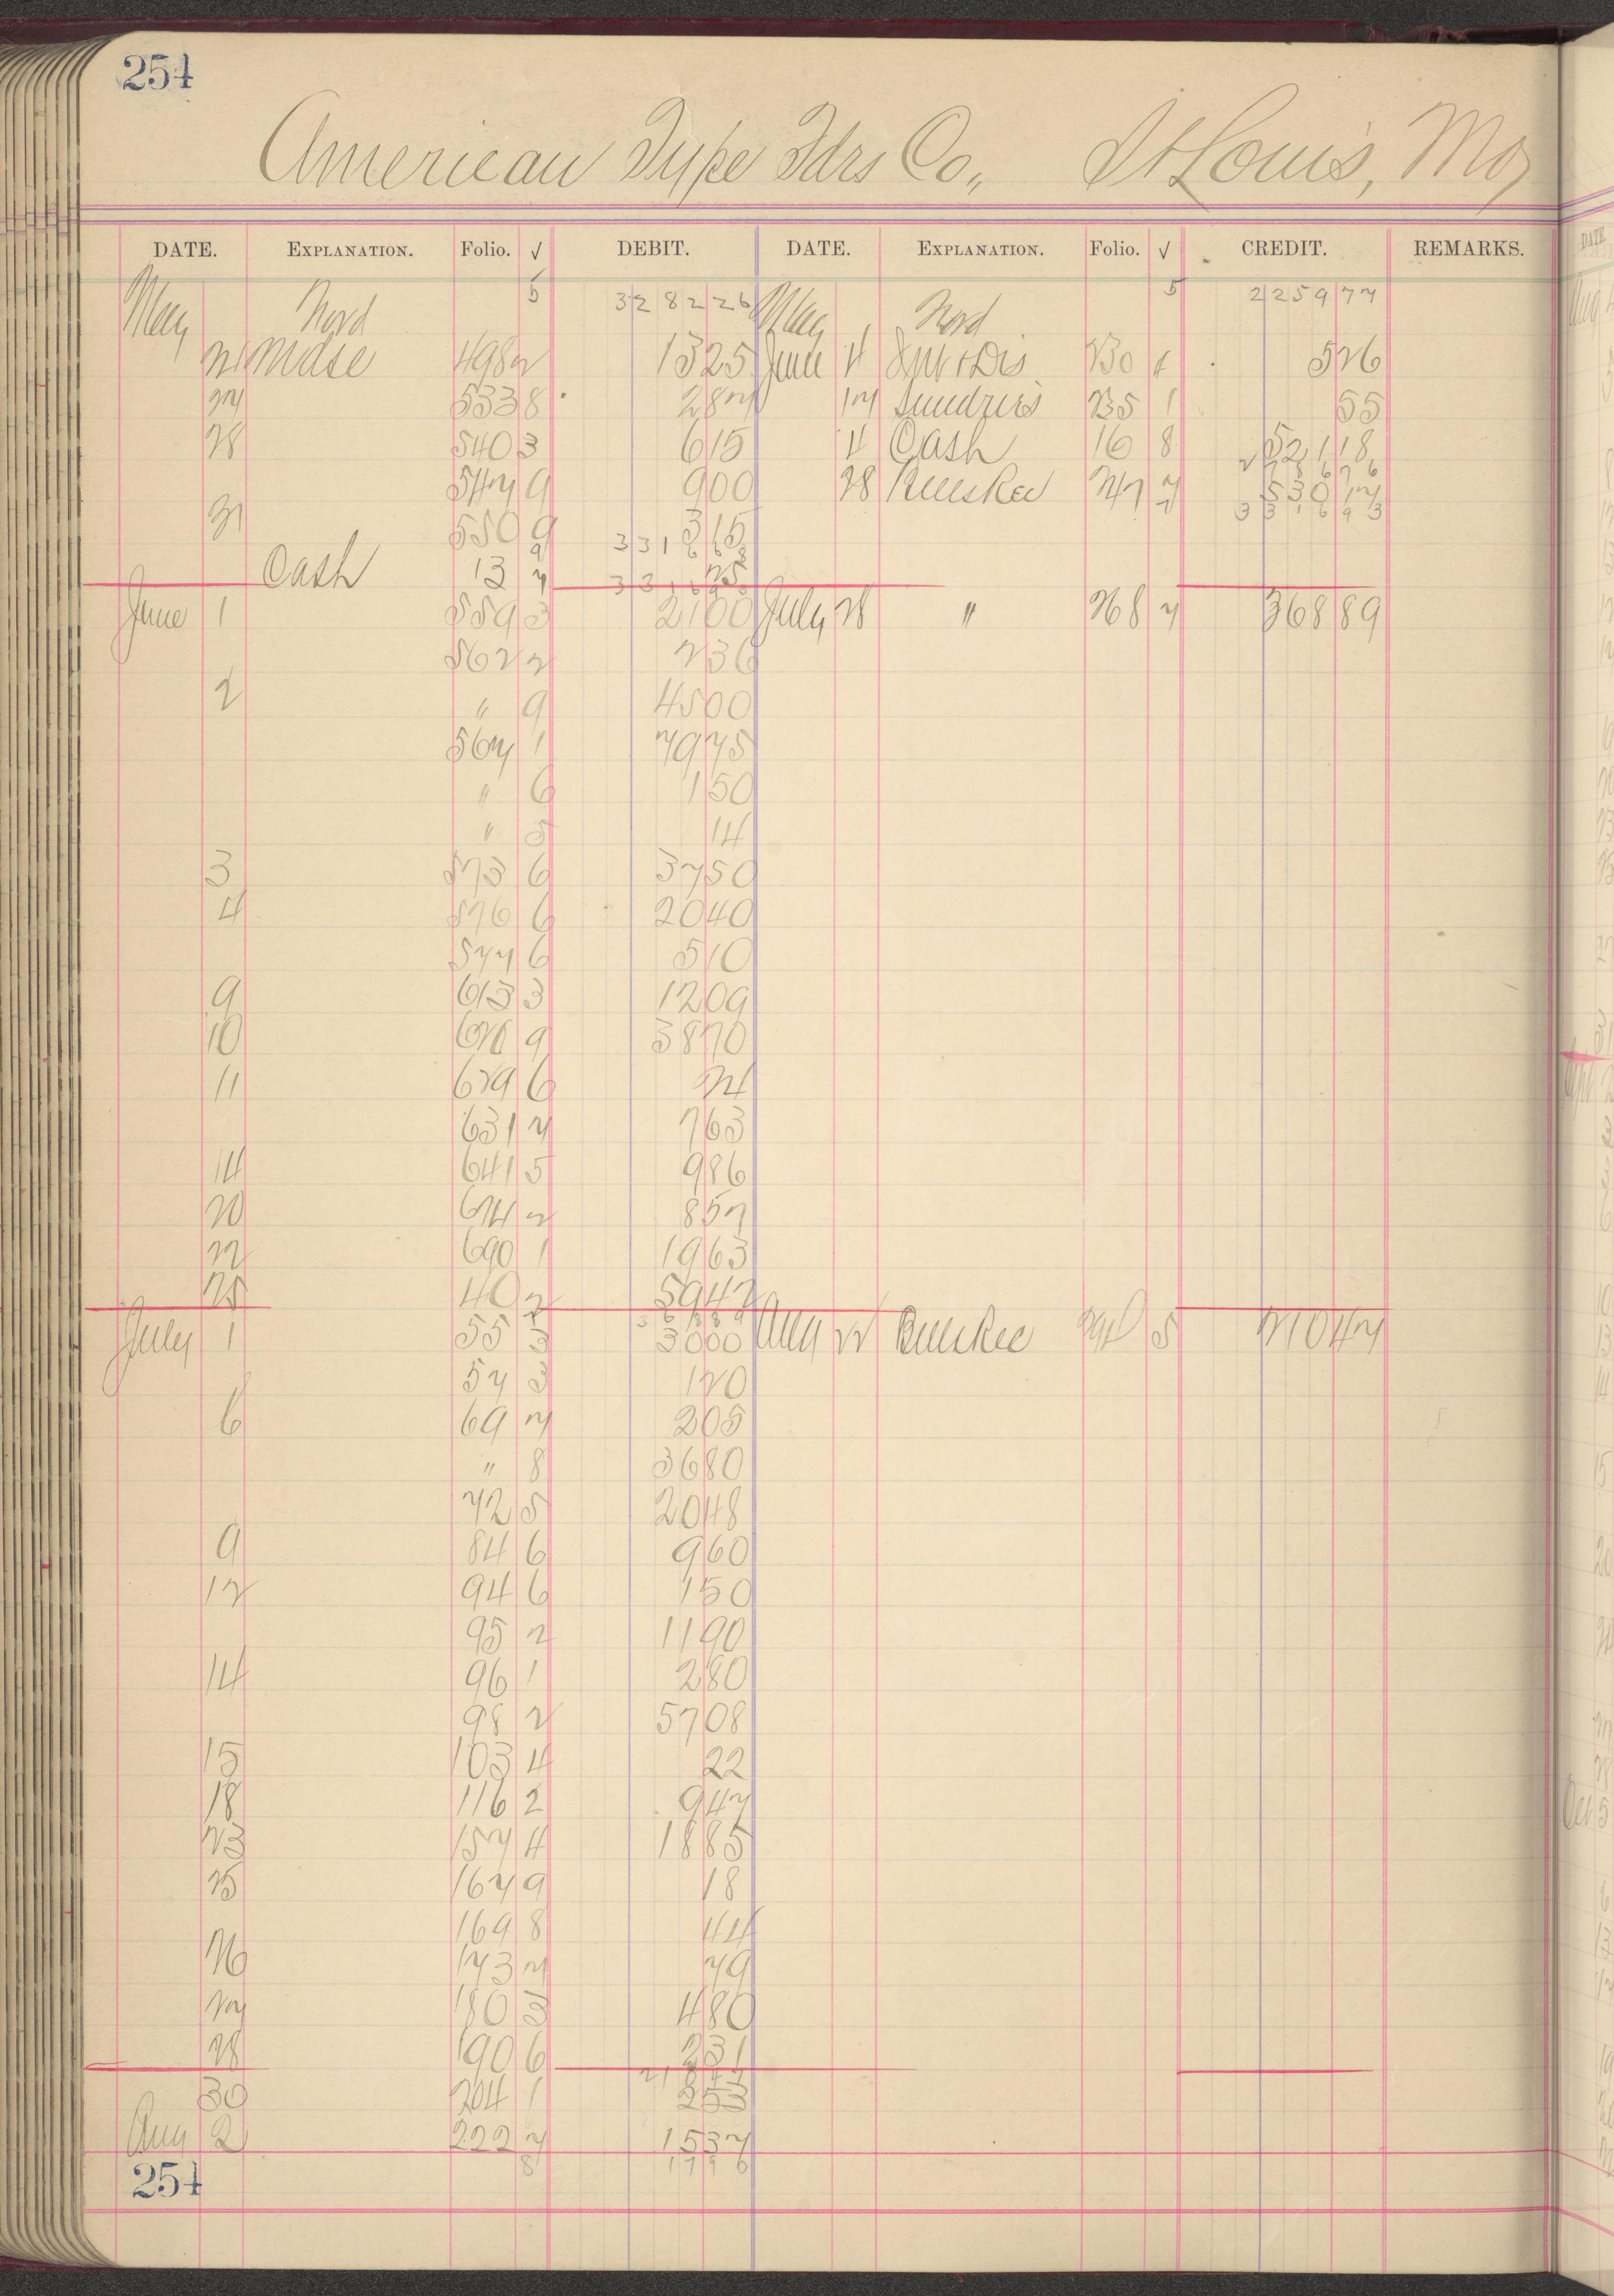 254
American Type Fdrs Co., St Louis, Mo
DATE. EXPLANATION. Folio. √ DEBIT. DATE. EXPLANATION. Folio. √ CREDIT. REMARKS.
May Ford 5 3282 26 May 1 Ford 5 2259 77
21 Mdse 498 2 13 25 June 4 230 1 5 26
27 533 8 2 87 17 Sundries 235 1 55
28 540 3 6 15 4 Cash 16 8 521 18
547 9 9 00 28 247 7 530 17
31 550 9 3 15 3316 93
Cash 13 7 25
June 1 559 3 21 00 July 28 " 268 7 368 89
562 2 2 36
2 " 9 45 00
567 1 79 75
" 6 1 50
" 5 14
3 573 6 37 50
4 576 6 20 40
577 6 5 10
9 613 3 12 09
10 9 38 70
11 629 6 24
631 7 7 63
14 641 5 9 86
20 674 2 8 57
22 690 1 19 63
25 40 2 59 42
July 1 55 3 30 00 Aug 22 5 210 47
57 3 1 20
6 69 7 2 05
" 8 36 80
72 5 20 48
9 84 6 9 60
12 94 6 1 50
95 2 11 90
14 96 1 2 80
98 2 57 08
15 103 4 22
18 116 2 9 47
23 157 4 18 85
25 167 9 18
169 8 44
26 173 7 79
27 180 3 4 80
28 190 6 2 31
30 204 1 2 53
Aug 2 222 7 15 37
8 17 9 6
254